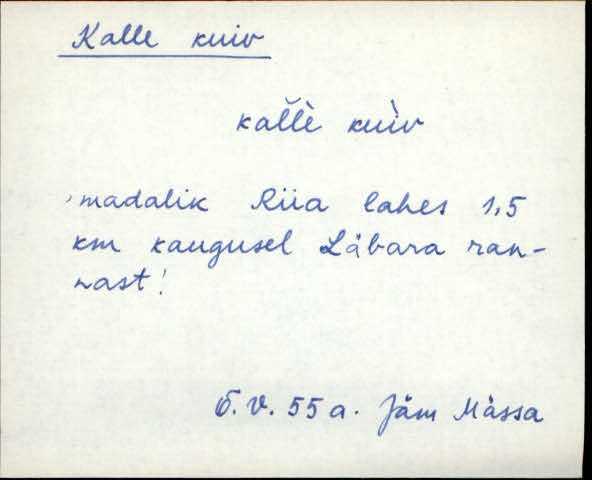 Kalle kuiv
kal̆l̆è kuìv
'madalik Riia lahes 1,5
km kaugusel Läbara ran-
nast!
Õ.V. 55 a. Jäm Mässa